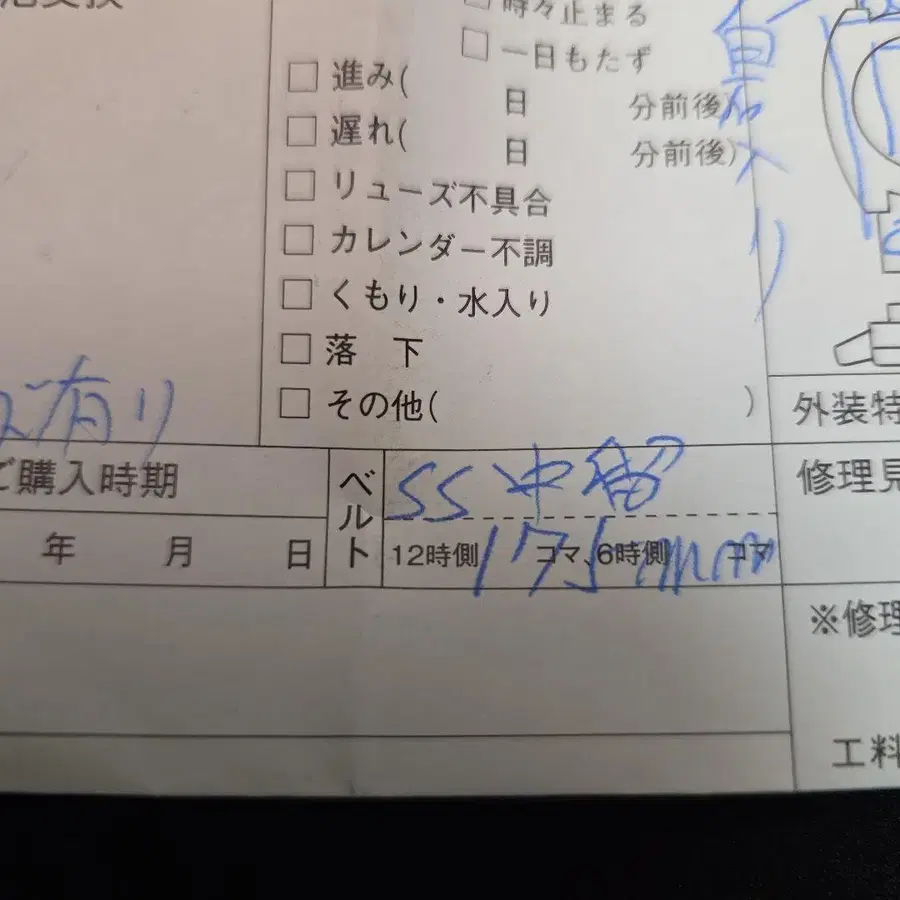 時々止まる
一日もたず
進み( 日 分前後)
遅れ( 日 分前後)
リューズ不具合
カレンダー不調
くもり・水入り
落 下
その他( )
有り
入り
外装特
ご購入時期
年 月 日
ベルト
SS 中留
12時側 コマ、6時側 コマ
175mm
修理見
※修理
工料